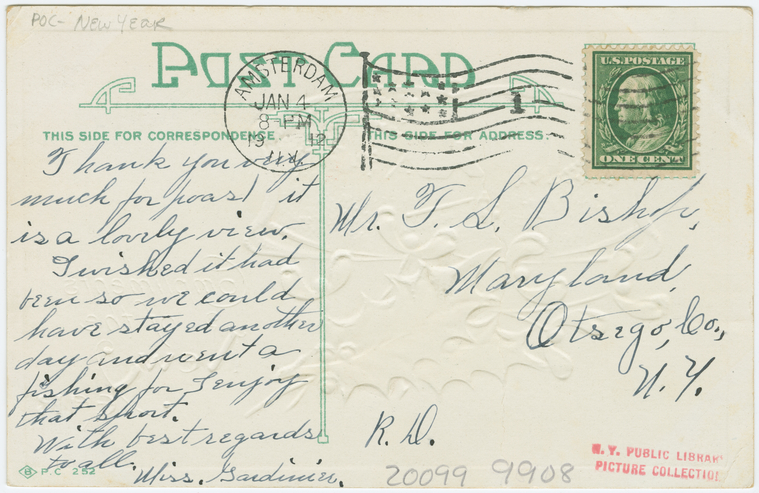 POC- NEW YEAR
POST CARD
AMSTERDAM
JAN 4
8 PM
1912
N.Y.
1
U.S. POSTAGE
ONE CENT
THIS SIDE FOR CORRESPONDENCE
THIS SIDE FOR ADDRESS.
Thank you very
much for poasl it
is a lovely view.
I wished it had
been so we could
have stayed another
day and went a
fishing for I enjoy
that sport.
With best regards
to all.
Miss. Gardinier.
Mr. T. S. Bishop,
Maryland,
Otsego, Co.,
N. Y.
R. D.
P.C 252
20099 9908
N. Y. PUBLIC LIBRARY
PICTURE COLLECTION